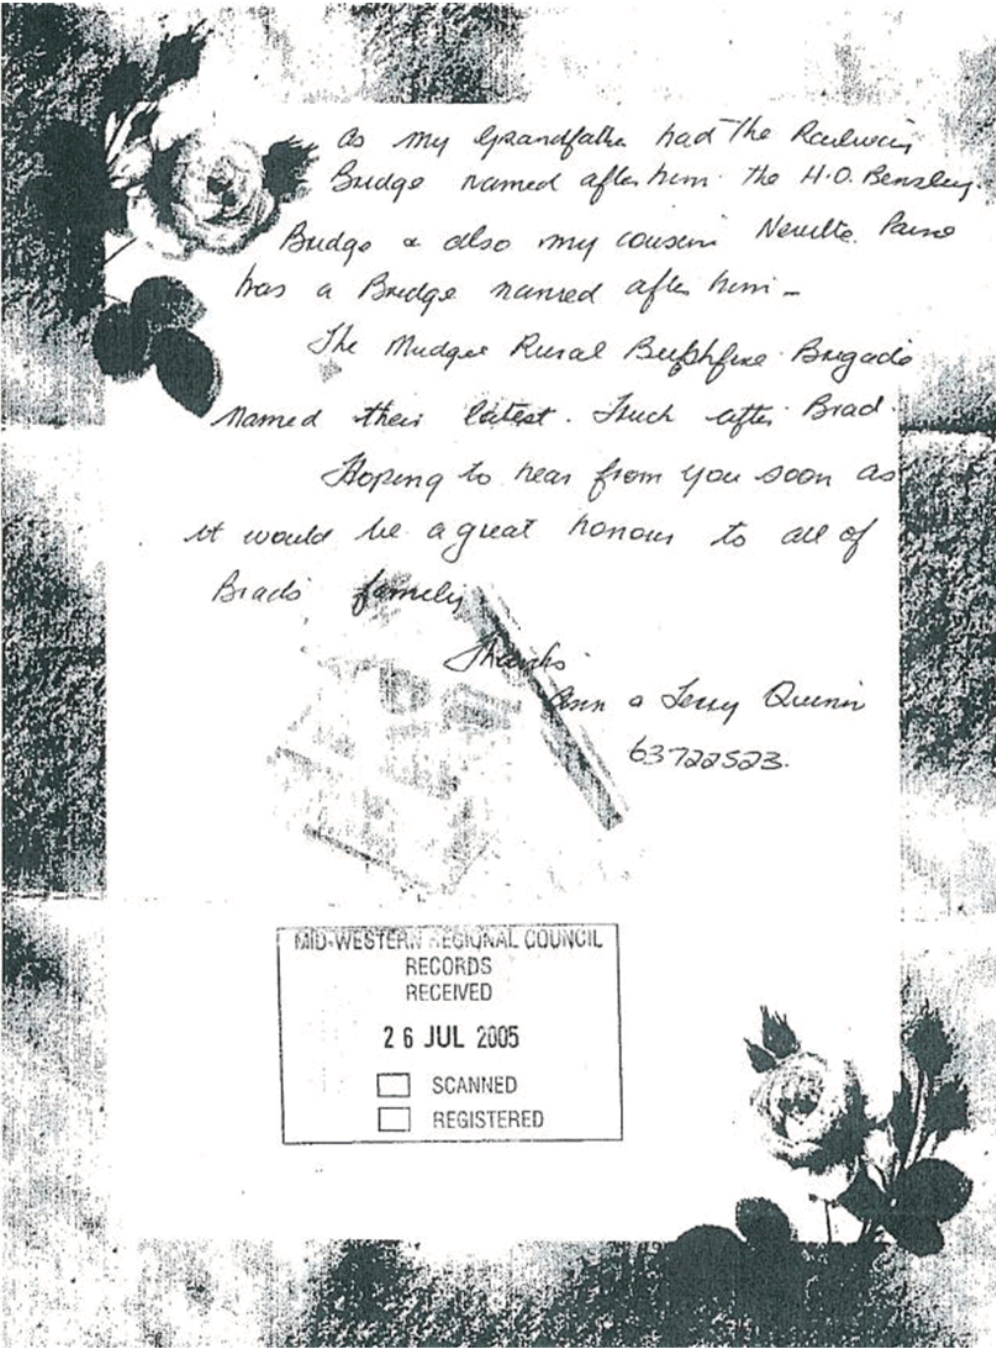 as my Grandfather had the Railway
Bridge named after him the H.O. Bensley.
Bridge & also my cousin Neville Paine
has a Bridge named after him -
The Mudgee Rural Bushfire Brigade
Named their latest. Truck after Brad.
Hoping to hear from you soon as
it would be a great honour to all of
Brads family
Thanks
Ann & Terry Quinn
63722523.
MID-WESTERN REGIONAL COUNCIL
RECORDS
RECEIVED
26 JUL 2005
SCANNED
REGISTERED